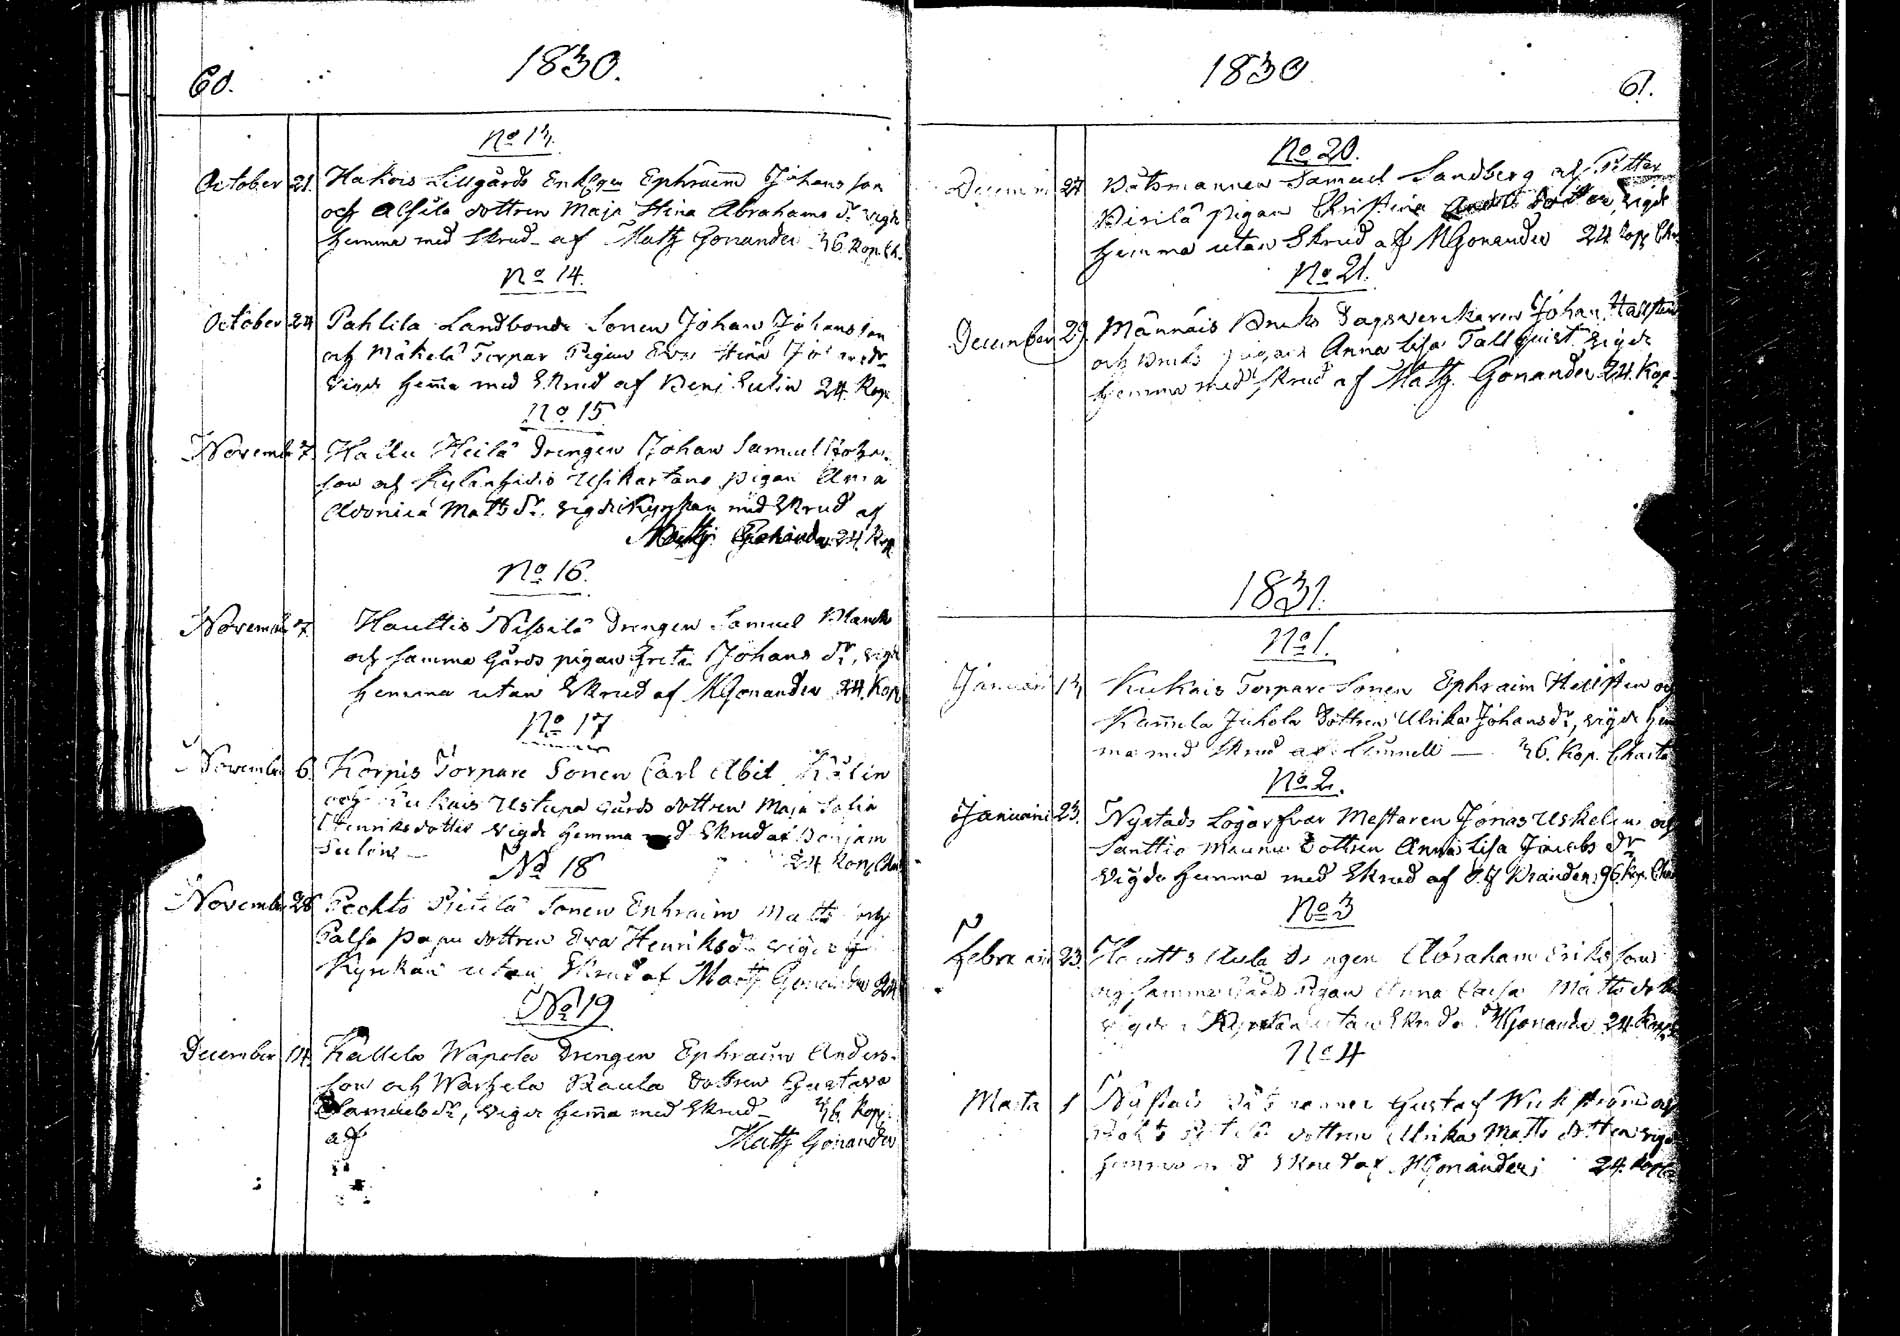 60.
1830.
No 13.
October 21. Hakois Lillgårds Enklgen Ephraim Johansson
och Alsila dottren Maja Stina Abrahams dr. vigde
hemma med Skrud af Matts Gonander 36. kop. Ch.
No 14.
October 24 Pahlila Landbonde Sonen Johan Johansson
och Mäkelä Torpar Pigan Eva Stina Johansdr
vigde hemma med Skrud af Benj. Eulin 24. Kop.
No 15
Novemb 7. Heikilä Drengen Johan Samuel Johans
son och Kylänhidis Usikartano pigan Anna
Matts dr. vigde i Kyrkan med Skrud af
Matts Gonander 24. Kop.
No 16.
November 7. Hauttis Nissilä Drengen Samuel Planck
och samma Gårds pigan Greta Johans dr, vigde
hemma utan Skrud af MGonander 24. Kop.
No 17
November 6. Korpis Torpare Sonen Carl Abil
och Kukois Uskupa Gårds dottren Maja Sofia
Henriksdotter vigde hemma med Skrud af Benjam
Eulin 24 Kop. Cha
No 18
November 28 Peckts Pietilä Sonen Ephraim Matts och
Palsa papu dottren Eva Henriksdr vigde i
Kyrkan utan Skrud af Matts Gonander 24
No 19
December 14. Källelä Wapola Drengen Ephraim Anders-
son och Warhela Raula Dottren Gustava
Samuelsdr, vigde hemma med Skrud 36. Kop.
af Matts Gonander
1830
61.
No 20.
December 27. Båtsmannen Samuel Sandberg af
Pirilä pigan Christina dotter, vigde
hemma utan Skrud af MGonander 24. Kop. Cha
No 21.
December 29. Männäis Bruks Dagsverckaren Johan Hallsten
och Bruks pigan Anna Lisa Tallquist vigde
hemma med skrud af Matts Gonander 24. Kop.
1831.
No 1.
Januari 13 Kukois Torpare Sonen Ephraim Hellsten och
Kamela Juhola Dottren Ulrika Johansdr, vigde hem
ma med Skrud af 36. Kop. Charta
No 2.
Januari 23. Nystads Logarfvar Mestaren Jonas Uskelin och
Santtio Maunu Dottren Anna Lisa Jacobs dr
vigde hemma med Skrud af Brander 96 Kop. Cha
No 3
Februari 23. Hautts Aula Drengen Abraham Eriksson
och samma Gårds Pigan Anna Caisa Matts dotter
vigde i Kyrkan utan Skrud MGonander 24. Kop.
No 4
Marta 1 Gustaf Wickström och
dottren Ulrika Matts dotter vigde
hemma med Skrud af MGonander 24. Kop.